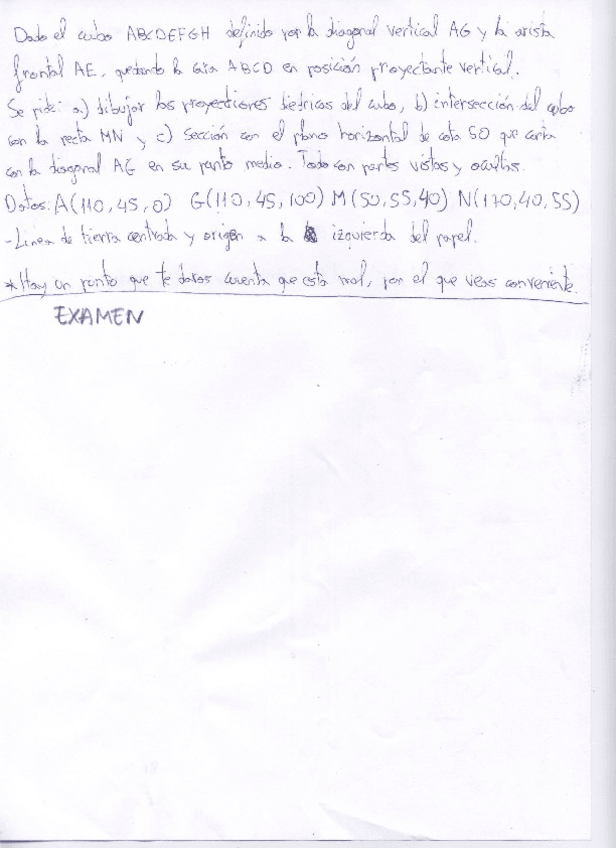 Dado el cubo ABCDEFGH definido por la diagonal vertical AG y la arista
frontal AE, quedando la cara ABCD en posición proyectante vertical.
Se pide: a) dibujar las proyecciones diédricas del cubo, b) intersección del cubo
con la recta MN y c) sección con el plano horizontal de cota 50 que corta
con la diagonal AG en su punto medio. Todo con partes vistas y ocultas.
Datos: A(110,45,0) G(110,45,100) M(50,55,40) N(170,40,55)
-Linea de tierra centrada y origen a la izquierda del papel.
*Hay un punto que te daras cuenta que esta mal, pon el que veas conveniente.
EXAMEN